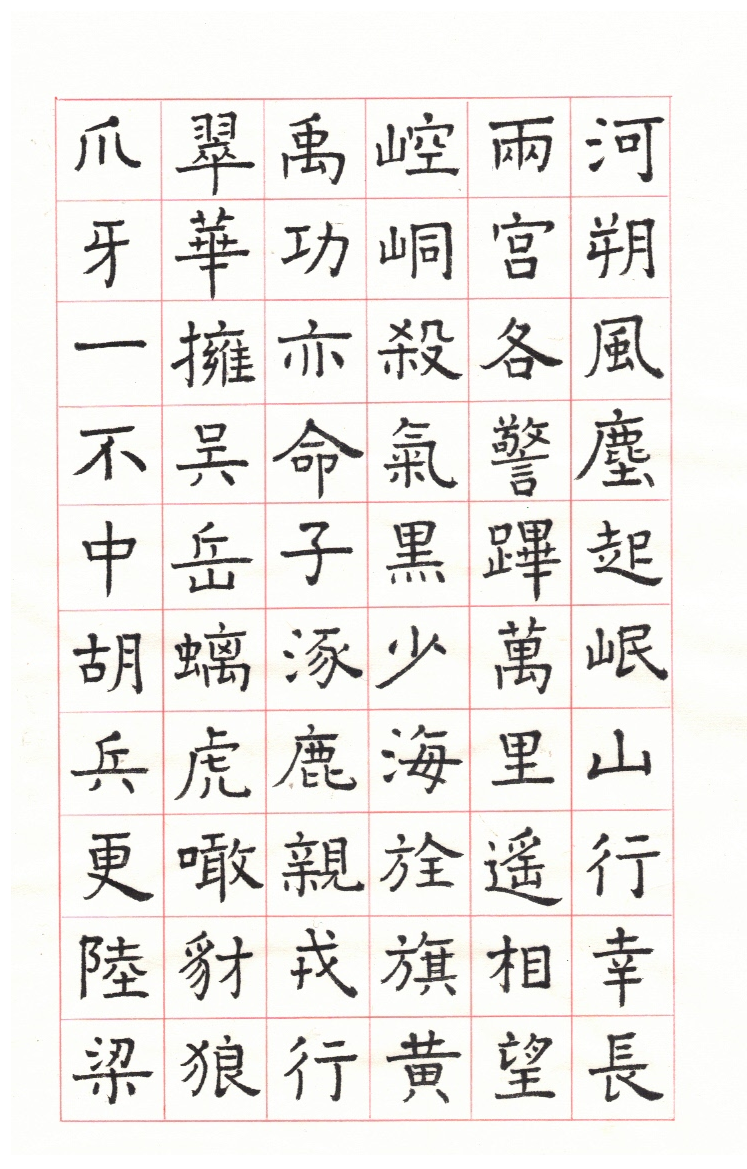 河朔風塵起岷山行幸長
兩宮各警蹕萬里遙相望
崆峒殺氣黑少海旌旗黄
禹功亦命子涿鹿親戎行
翠華擁吳岳螭虎噉豺狼
爪牙一不中胡兵更陸梁